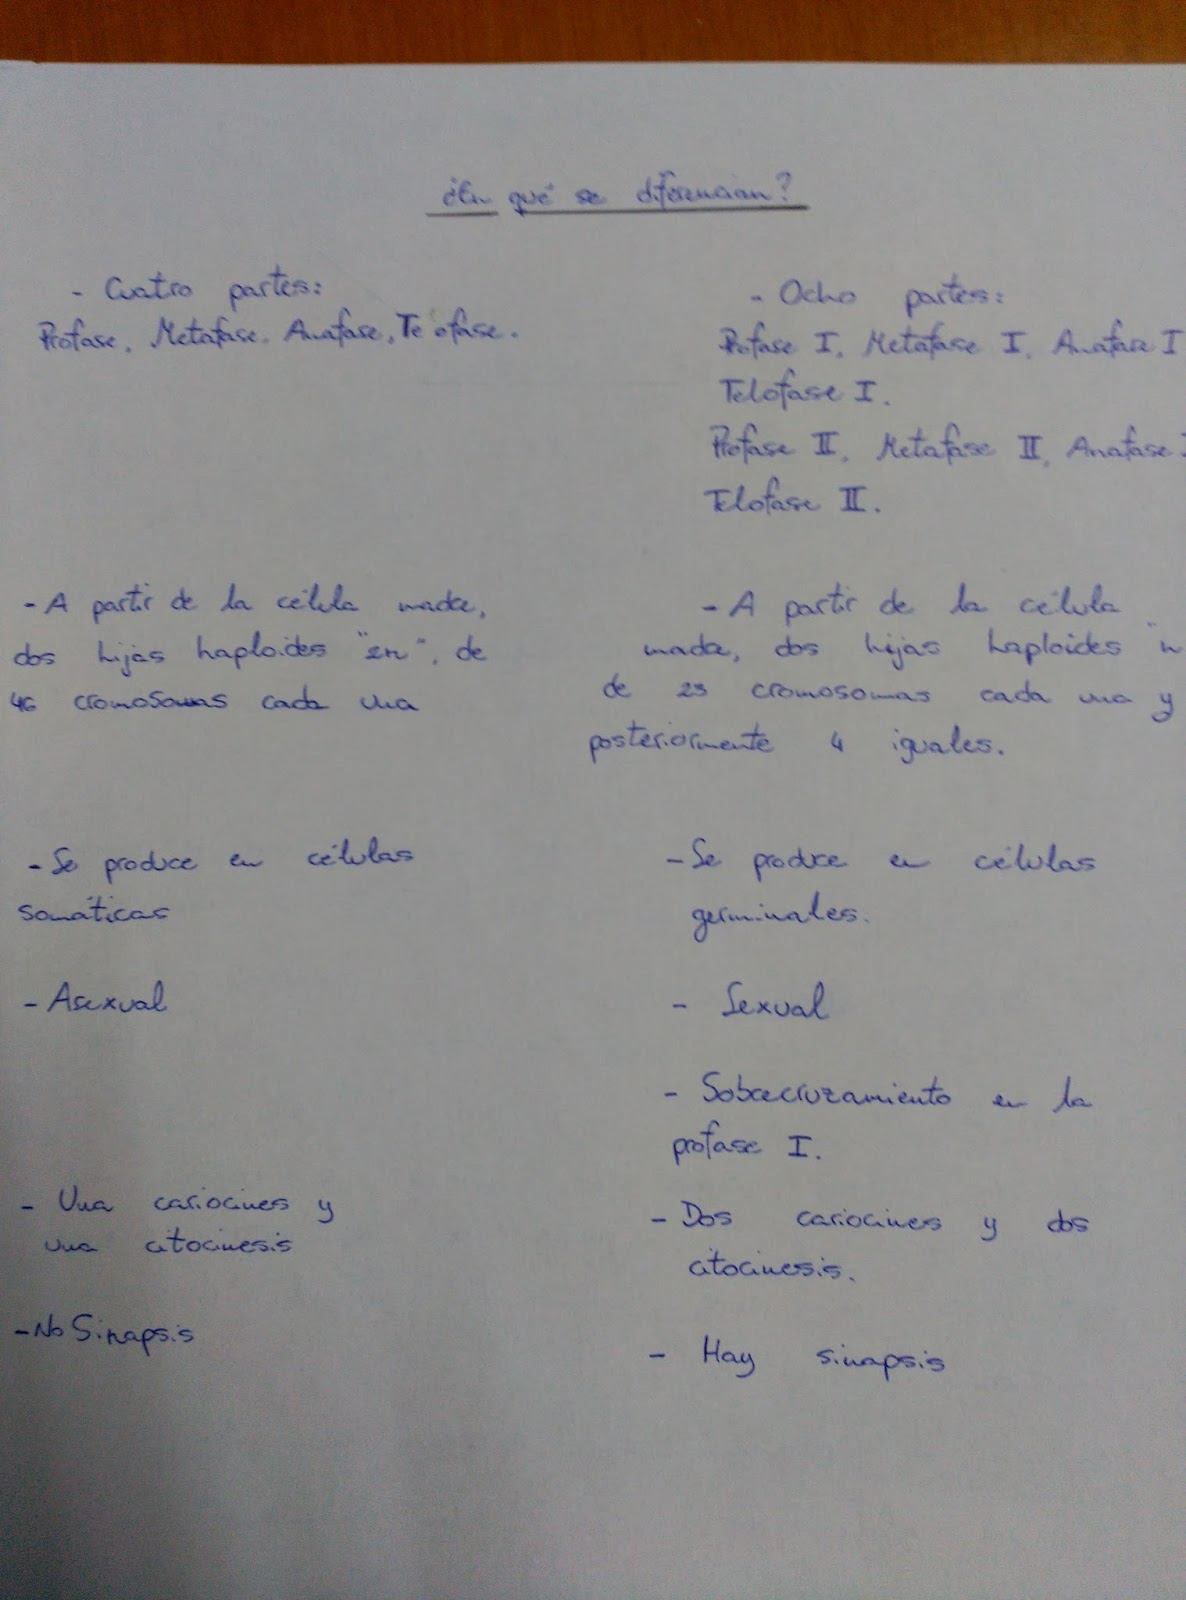 ¿En qué se diferencian?
- Cuatro partes:
Profase, Metafase, Anafase, Te ofase.
- A partir de la célula madre,
dos hijas haploides "2n", de
46 cromosomas cada una
- Se produce en células
somáticas
- Asexual
- Una cariocines y
una citocinesis
- No Sinapsis
- Ocho partes:
Profase I, Metafase I, Anafase I
Telofase I.
Profase II, Metafase II, Anafase I
Telofase II.
- A partir de la célula
madre, dos hijas haploides "n
de 23 cromosomas cada una y
posteriormente 4 iguales.
- Se produce en células
germinales.
- Sexual
- Sobrecruzamiento en la
profase I.
- Dos cariocines y dos
citocinesis.
- Hay sinapsis